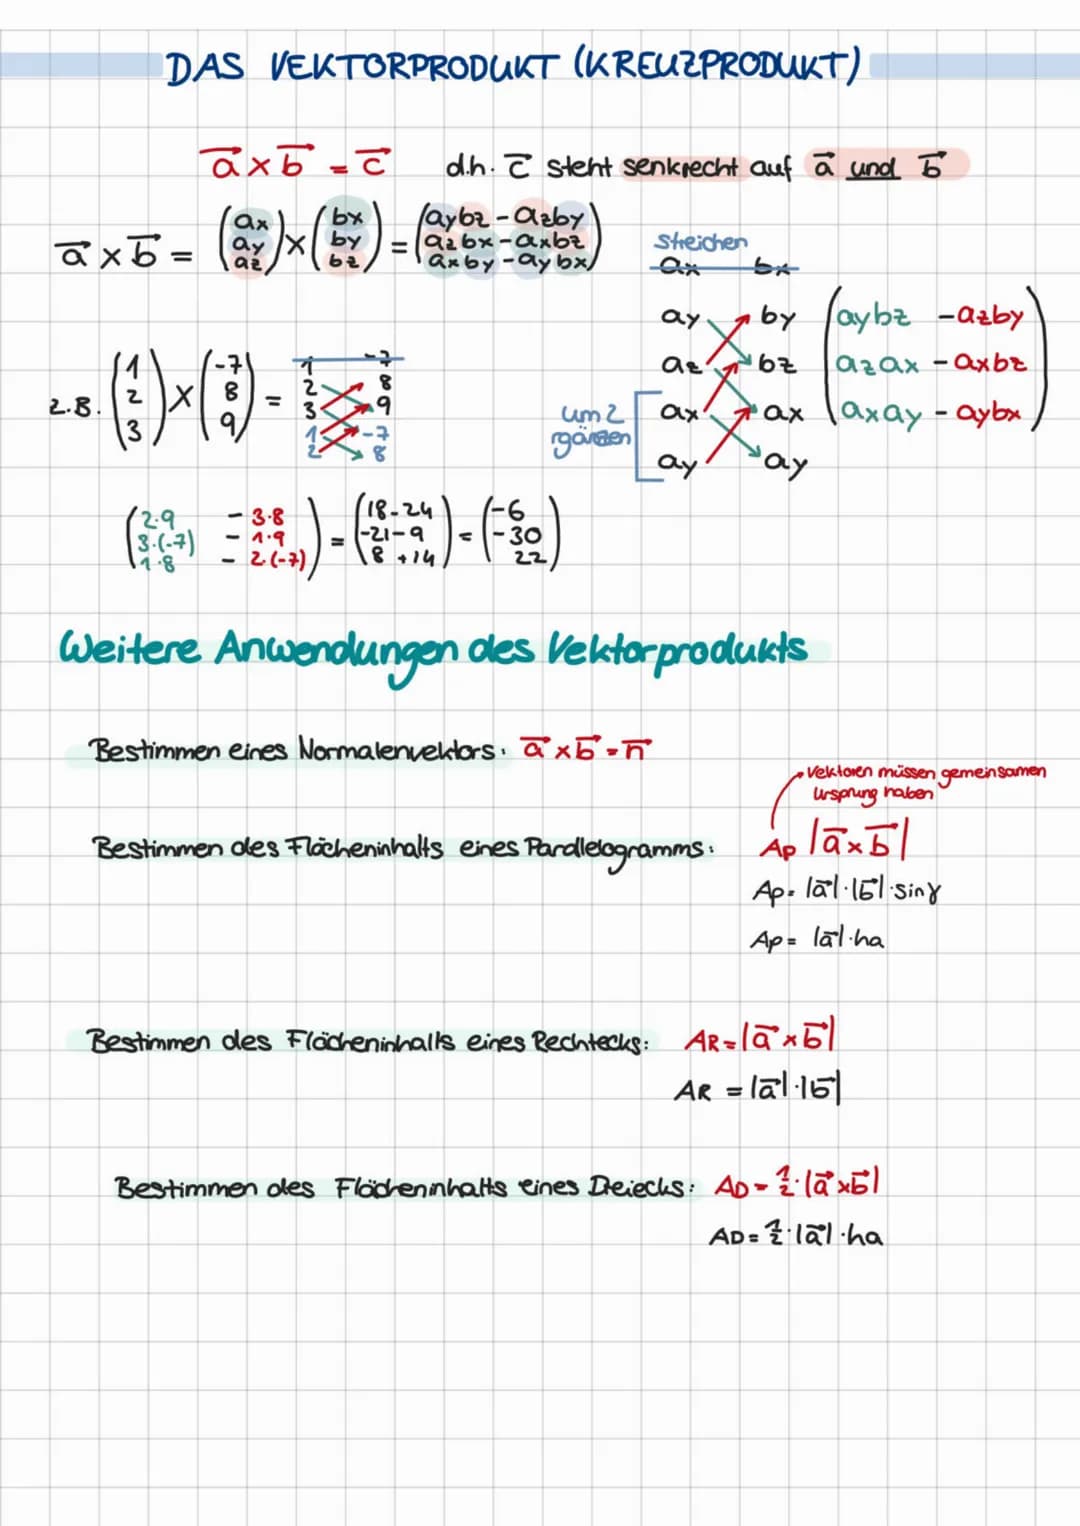 DAS VEKTORPRODUKT (KREUZPRODUKT)
a⃗ × b⃗ = c⃗ d.h. c⃗ steht senkrecht auf a⃗ und b⃗
a⃗ × b⃗ = (ax ay az) × (bx by bz) = (aybz - azby azbx - axbz axby - aybx)
streichen
ax bx
ay by
az bz
um 2 rgänzen
ax ax
ay ay
(aybz - azby
azax - axbz
axay - aybx)
z.B. (1 2 3) × (-7 8 9) =
1 -7
2 8
3 9
1 -7
2 8
(2·9 - 3·8
3·(-7) - 1·9
1·8 - 2·(-7))
= (18-24 -21-9 8+14) = (-6 -30 22)
Weitere Anwendungen des Vektorprodukts
Bestimmen eines Normalenvektors: a⃗ × b⃗ = n⃗
Vektoren müssen gemeinsamen
Ursprung haben
Bestimmen des Flächeninhalts eines Parallelogramms: Ap |a⃗ × b⃗|
Ap = |a⃗|·|b⃗|·sinγ
Ap = |a⃗|·ha
Bestimmen des Flächeninhalts eines Rechtecks: AR = |a⃗ × b⃗|
AR = |a⃗|·|b⃗|
Bestimmen des Flächeninhalts eines Dreiecks: AD = 1/2·|a⃗ × b⃗|
AD = 1/2·|a⃗|·ha